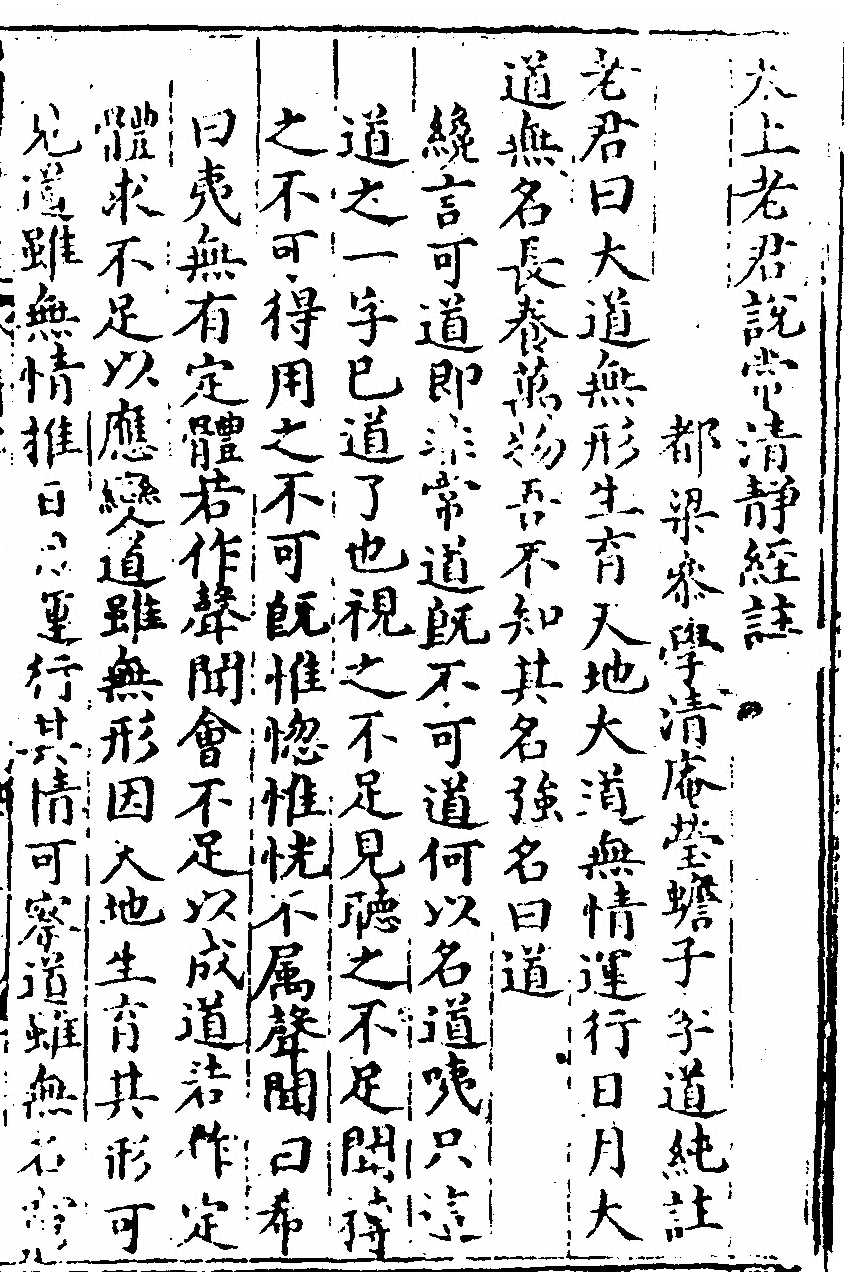 太上老君說常清靜經註
都梁參學清庵瑩蟾子李道純註
老君曰大道無形生育天地大道無情運行日月大
道無名長養萬物吾不知其名強名曰道
纔言可道即非常道既不可道何以名道咦只這
道之一字已道了也視之不足見聽之不足聞搏
之不可得用之不可既惟惚惟恍不属聲聞曰希
曰夷無有定體若作聲聞會不足以成道若作定
體求不足以應變道雖無形因天地生育其形可
見道雖無情推日月運行其情可察道雖無名